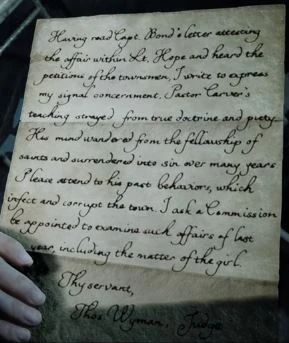 Having read Capt. Bond's letter attesting
the affair within Lt. Hope and heard the
petitions of the townsmen, I write to express
my signal concernment. Pastor Carver's
teaching strayed from true doctrine and piety.
His mind wandered from the fellowship of
saints and surrendered into sin over many years
Please attend to his past behaviors, which
infect and corrupt the town. I ask a Commission
be appointed to examine such affairs of last
year, including the matter of the girl.
Thy servant,
Thos Wyman, Judge